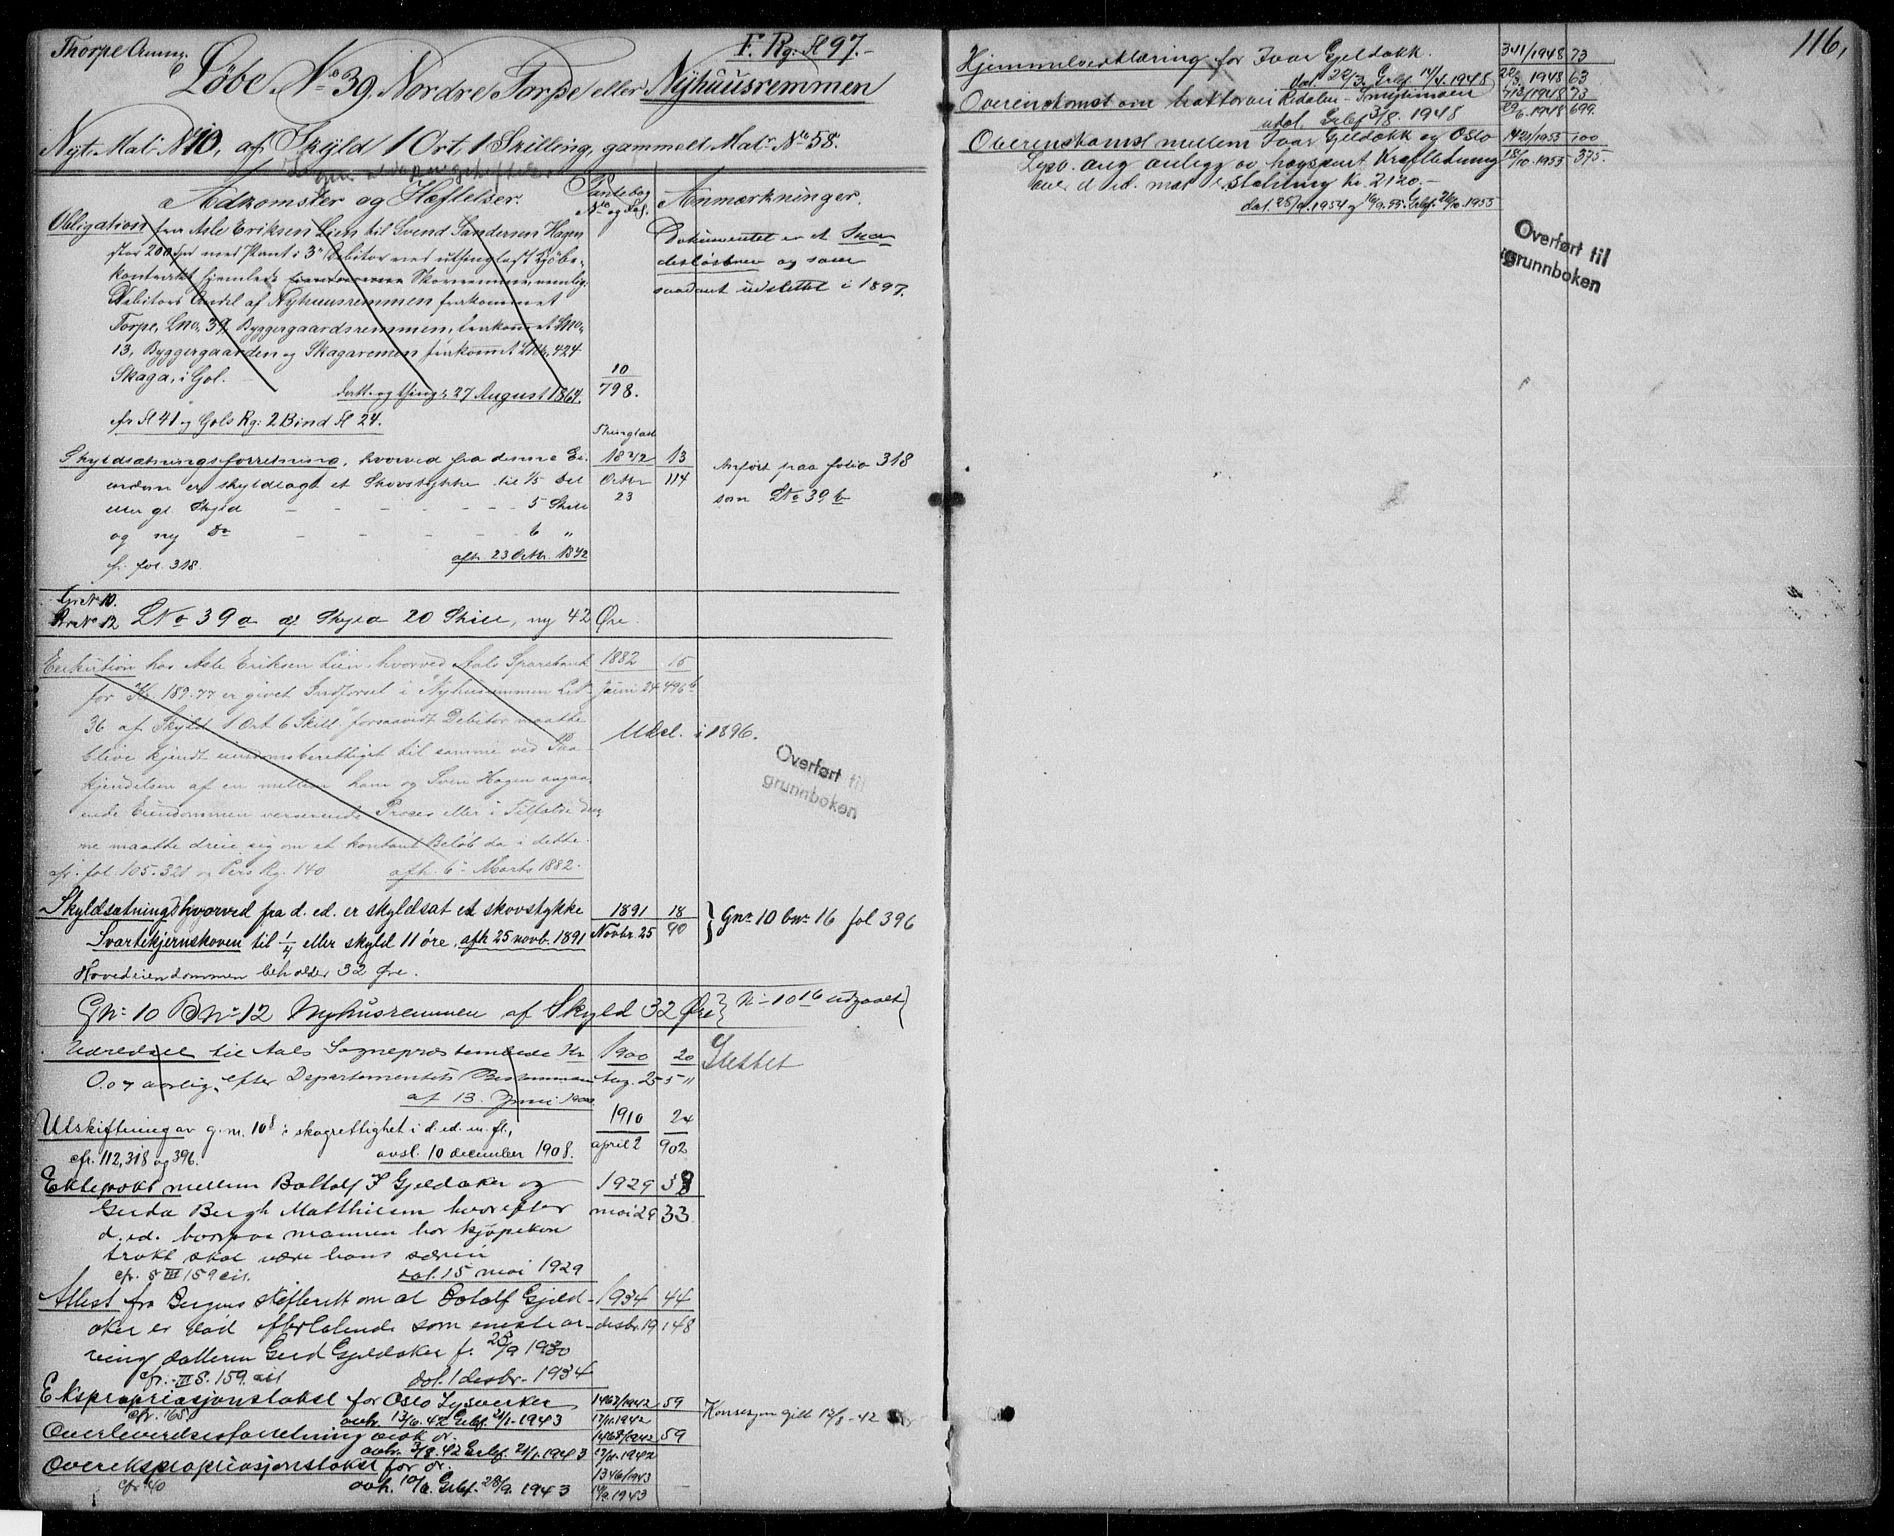 Thorpe Annex.
F. Rg: fl 97.-
Löbe No 39, Nordre Torpe eller Nyhuusremmen
Nyt Mat: No 10, af Skyld 1 Ort, 1 Skilling, gammelt Mat: No 58.
Adkomster og Hæftelser.
Pantebog No og Fol.
Anmærkninger.
Obligation fra Asle Eriksen Lien til Svend Sandersen Hagen
stor 200 Spd med Pant i 3de Debitor med uthinglyst Kjöbe-
kontrakt hjemlede Skovremmer, nemlig
Debitors Andel af Nyhuusremmen frakommet
Torpe, Lno. 39, Byggergaardsremmen, frakommet Lno.
13, Byggergaarden og Skagaremen frakommet LNo. 424
Skaga, i Gol.
dat. og thingl. 27 August 1864.
cfr fl 41 og Gols Rg: 2 Bind fl 24.
10
798.
Dokumentet er et Ska-
deslösbrev og som
saadant udslettet i 1897.
Skyldsætningsforretning, hvorved fra denne Ei-
endom er skyldlagt et Skovstykke til 1/5 Del
eller gl. Skyld - - - - - 5 Skill
og ny Do - - - - - 6 "
fr. fol. 318. afh. 23 Octbr. 1872
Thinglæst
1872 13
Octbr 114
23
Anfört paa folio 318
som LNo 39 b
Gne No 10.
Brno No 12 LNo 39 a gl Skyld 20 Skill, ny 42 Øre.
Exekution hos Asle Eriksen Lien, hvorved Aals Sparebank
for Kr. 189.77 er givet Indförsel i "Nyhusremmen LNo
36 af Skyld 1 Ort 6 Skill" forsaavidt Debitor maatte
blive kjendt eiendomsberettiget til samme ved Paa-
kjendelsen af en mellem ham og Sven Hagen angaa-
ende Eiendommen verserende Proces eller i Tilfælde den-
ne maatte dreie sig om et kontant Belöb da i dette.
cfr. fol. 105. 321 og Pers Rg. 140 afh. 6te Marts 1882.
1882 15
Juni 24 496 b
Udsl. i 1896.
Overført til
grunnboken
Skyldsætning hvorved fra d. ed. er skyldsat et skovstykke
Svartekjernskoven til 1/4 eller skyld 11 øre, afh 25 novb. 1891
Hovedeiendommen beholder 32 Øre.
1891 18
Novbr. 25 90
} Gnr 10 bnr 16 fol 396
Gnr 10 Bnr 12 Nyhusremmen af Skyld 32 Øre { No 10 16 udgaaet }
Udredsel til Aals Sognepræstembede Kr
0.07 aarlig, efter Departementets Bestemmelse
af 13. Juni 1900.
1900 20
Aug. 25 511
Slettet
Utskiftning av g. nr. 10 8 i skogrettighet i d. ed. m. fl.,
cfr. 112, 318 og 396. avsl. 10 december 1908.
1910 24
april 2 902
Ektepakt mellem Botolf T Gjeldaker og
Gerda Bergh Matthiesen hvorefter
d. ed. hvorpaa mannen har kjøpekon
trakt skal være hans særeie
cfr. S III 159 cit. dat. 15 mai 1929
1929 38
mai 29 33
Attest fra Bergens skifterett om at Botolf Gjeld-
aker er død efterlatende som eneste ar-
ving datteren Gerd Gjeldaker f. 25/9 1930
cfr. III S. 159. cit dat. 1 desbr. 1934
1934 44
desbr. 19 148
Ekspropriasjonstakst for Oslo Lysverker
cfr. 165 avh. 13/6. 42 Grbf. 21/1-1943
1467/1942 59
17/11.1942
Konsesjon gitt 12/8-42
Overleveringsforretning
avh. 3/8. 42 Grbf. 21/1.1943
1468/1942 59
17/11.1942
Overekspropriasjonstakst for dr.
avh. 10/6. Grbf. 28/9. 1943
1346/1943
14/9.1943
116,
Hjemmelserklæring for Ivar Gjeldokk.
dat. 22/3. Grbf. 14/4.1948
341/1948 73
22/3 1948 63
Overenskomst om traktorvei Ridalen - Smylimoen
udat. Grbf. 3/8. 1948
713/1948 73
29/6.1948 699.
Overenskomst mellem Ivar Gjeldokk og Oslo
Lysv. ang anlegg av høgspent kraftledning
over d. ed. mot erstatning kr. 2120.-
dat. 25/9.1954 og 16/9.55. Grbf. 26/10.1955
1421/1955 100
15/10.1955 375.
Overført til
grunnboken